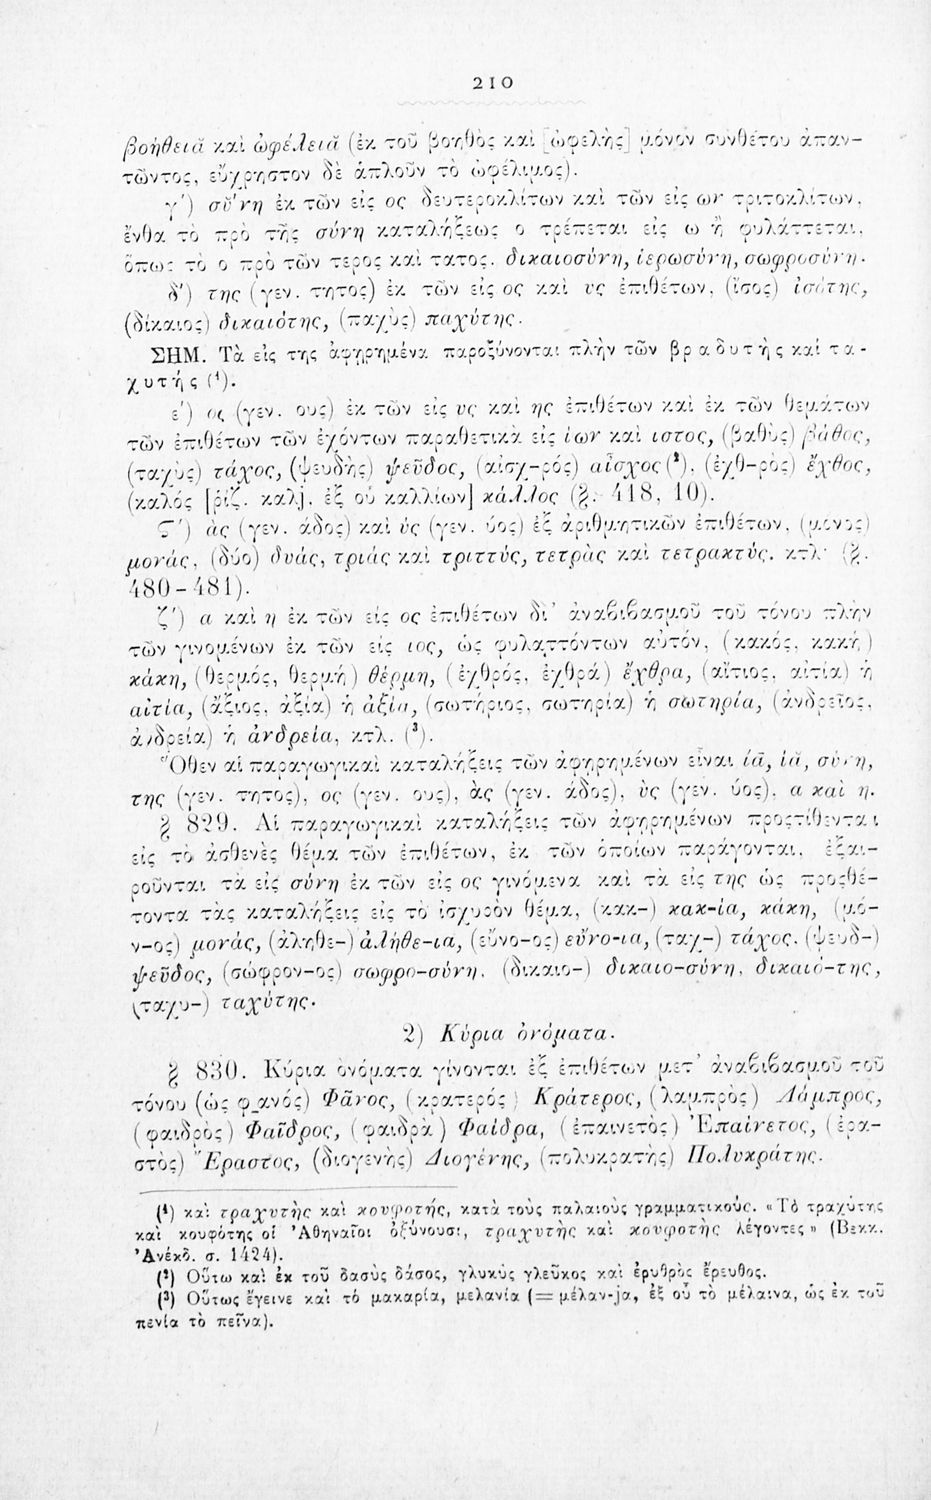 210
βοήθειᾰ καὶ ὠφέλειᾰ (ἐκ τοῦ βοηθὸς καὶ [ὠφελὴς] μόνον συνθέτου ἀπαν-
τῶντος, εὔχρηστον δὲ ἁπλοῦν τὸ ὠφέλιμος).
γ΄) σύνη ἐκ τῶν εἰς ος δευτεροκλίτων καὶ τῶν εἰς ων τριτοκλίτων,
ἔνθα τὸ πρὸ τῆς σύνη καταλήξεως ο τρέπεται εἰς ω ἢ φυλάττεται,
ὅπως τὸ ο πρὸ τῶν τερος καὶ τατος. δικαιοσύνη, ἱερωσύνη, σωφροσύνη.
δ΄) της (γεν. τητος) ἐκ τῶν εἰς ος καὶ υς ἐπιθέτων, (ἴσος) ἰσότης,
(δίκαιος) δικαιότης, (παχὺς) παχύτης.
ΣΗΜ. Τὰ εἰς της ἀφῃρημένα παροξύνονται πλὴν τῶν βραδυτὴς καὶ τα-
χυτής (¹).
ε΄) ος (γεν. ους) ἐκ τῶν εἰς υς καὶ ης ἐπιθέτων καὶ ἐκ τῶν θεμάτων
τῶν ἐπιθέτων τῶν ἐχόντων παραθετικὰ εἰς ίων καὶ ιστος, (βαθὺς) βάθος,
(ταχὺς) τάχος, (ψευδὴς) ψεῦδος, (αἰσχ-ρός) αἶσχος (²), (ἐχθ-ρὸς) ἔχθος,
(καλός [ῥίζ. καλj, ἐξ οὗ καλλίων] κάλλος (§. 418, 10).
Ϛ΄) ὰς (γεν. άδος) καὶ ὺς (γεν. ύος) ἐξ ἀριθμητικῶν ἐπιθέτων, (μόνος)
μονάς, (δύο) δυάς, τριὰς καὶ τριττύς, τετρὰς καὶ τετρακτύς. κτλ (§.
480-481).
ζ΄) α καὶ η ἐκ τῶν εἰς ος ἐπιθέτων δι᾿ ἀναβιβασμοῦ τοῦ τόνου πλὴν
τῶν γινομένων ἐκ τῶν εἰς ιος, ὡς φυλαττόντων αὐτόν, (κακός, κακή)
κάκη, (θερμός, θερμή) θέρμη, (ἐχθρός, ἐχθρά) ἔχθρα, (αἴτιος, αἰτία) ἡ
αἰτία, (ἄξιος, ἀξία) ἡ ἀξία, (σωτήριος, σωτηρία) ἡ σωτηρία, (ἀνδρεῖος,
ἀνδρεία) ἡ ἀνδρεία, κτλ. (³).
Ὅθεν αἱ παραγωγικαὶ καταλήξεις τῶν ἀφῃρημένων εἶναι ίᾱ, ίᾰ, σύνη,
της (γεν. τητος), ος (γεν. ους), ὰς (γεν. άδος), ὺς (γεν. ύος), α καὶ η.
§ 829. Αἱ παραγωγικαὶ καταλήξεις τῶν ἀφῃρημένων προςτίθενται
εἰς τὸ ἀσθενὲς θέμα τῶν ἐπιθέτων, ἐκ τῶν ὁποίων παράγονται, ἐξαι-
ροῦνται τὰ εἰς σύνη ἐκ τῶν εἰς ος γινόμενα καὶ τὰ εἰς της ὡς προςθέ-
τοντα τὰς καταλήξεις εἰς τὸ ἰσχυρὸν θέμα, (κακ-) κακ-ία, κάκη, (μό-
ν-ος) μονάς, (ἀληθε-) ἀλήθε-ια, (εὔνο-ος) εὔνο-ια, (ταχ-) τάχος, (ψευδ-)
ψεῦδος, (σώφρον-ος) σωφρο-σύνη, (δικαιο-) δικαιο-σύνη, δικαιό-της,
(ταχυ-) ταχύτης.
2) Κύρια ὀνόματα.
§ 830. Κύρια ὀνόματα γίνονται ἐξ ἐπιθέτων μετ᾿ ἀναβιβασμοῦ τοῦ
τόνου (ὡς φανός) Φᾶνος, (κρατερός) Κράτερος, (λαμπρὸς) Λάμπρος,
(φαιδρὸς) Φαῖδρος, (φαιδρὰ) Φαίδρα, (ἐπαινετὸς) Ἐπαίνετος, (ἐρα-
στὸς) Ἔραστος, (διογενὴς) Διογένης, (πολυκρατὴς) Πολυκράτης.
(¹) καὶ τραχυτὴς καὶ κουφοτής, κατὰ τοὺς παλαιοὺς γραμματικούς. «Τὸ τραχύτης
καὶ κουφότης οἱ Ἀθηναῖοι ὀξύνουσι, τραχυτὴς καὶ κουφοτὴς λέγοντες» (Βεκκ.
Ἀνέκδ. σ. 1424).
(²) Οὕτω καὶ ἐκ τοῦ δασὺς δάσος, γλυκὺς γλεῦκος καὶ ἐρυθρὸς ἔρευθος.
(³) Οὕτως ἔγεινε καὶ τὸ μακαρία, μελανία (= μέλαν-ja, ἐξ οὗ τὸ μέλαινα, ὡς ἐκ τοῦ
πενία τὸ πεῖνα).